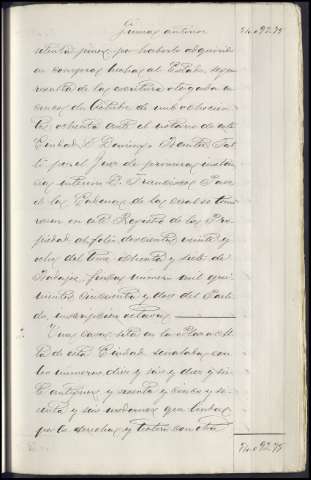 Suma anterior 74.092.75
setenta pinos, por haberlo adquirido
en compras hechas al Estado, segun
resulta de las escrituras otorgadas en
once de Octubre de mil ochocien
tos ochenta ante el notario de esta
Ciudad D. Domingo Benito
por el Juez de primera instan
cia interino D. Francisco
de las Cabenas de las cuales se tomó
razon en este Registro de la Pro
piedad al folio doscientos veinte y
ocho del tomo ochenta y seis de
Badajoz, finca número mil qui
nientos cincuenta y dos del Parti
do, inscripcion octava.
Una casa sita en la Plaza al
ta de esta Ciudad señalada con
los numeros diez y seis y diez y sie
te antiguos y sesenta y cinco y se
senta y seis modernos que linda
por la derecha y trasera con otra
74.092.75